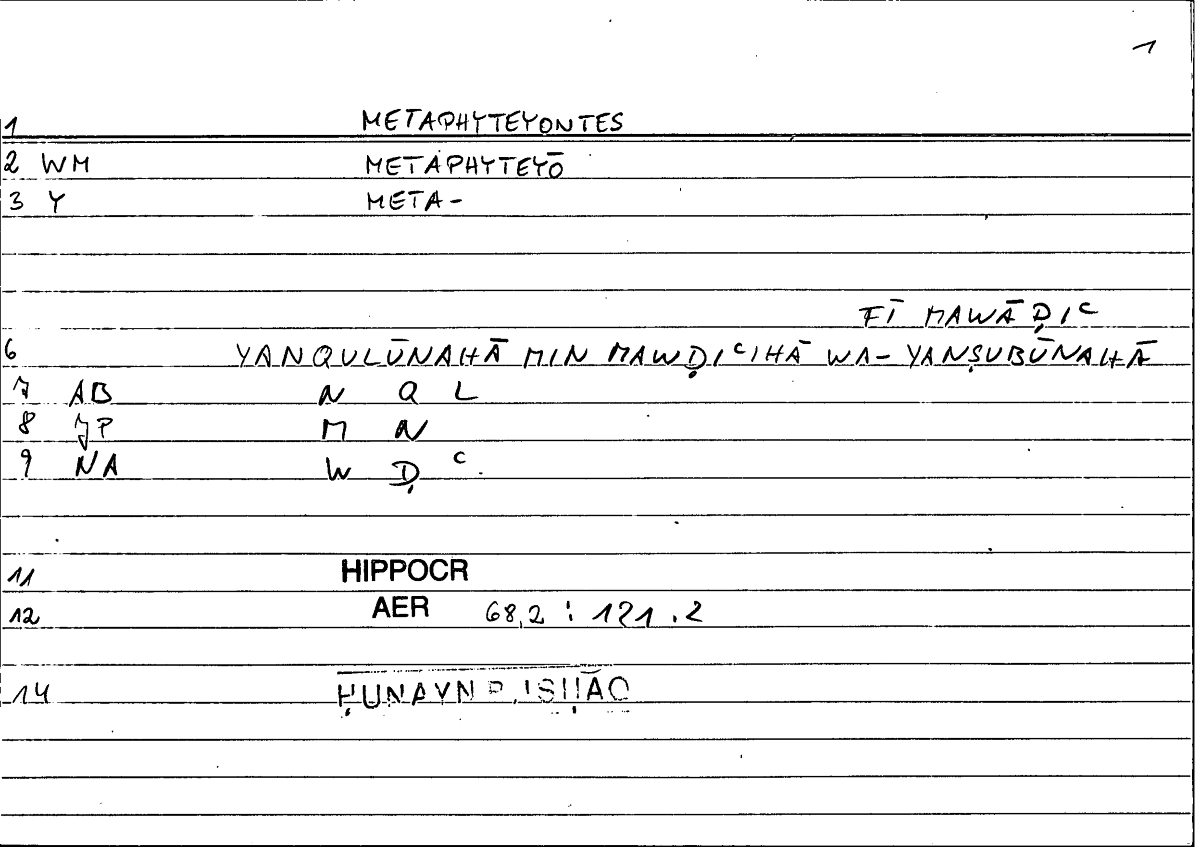 1
1 METAPHYTEYONTES
2 WM METAPHYTEYŌ
3 Y META-
FĪ MAWĀḌIC
6 YANQULŪNAHĀ MIN MAWḌICIHĀ WA-YANṢUBŪNAHĀ
7 AB N Q L
8 JP M N
9 NA W Ḍ C
11 HIPPOCR
12 AER 68,2 : 121.2
14 ḤUNAYN B. ISḤĀQ